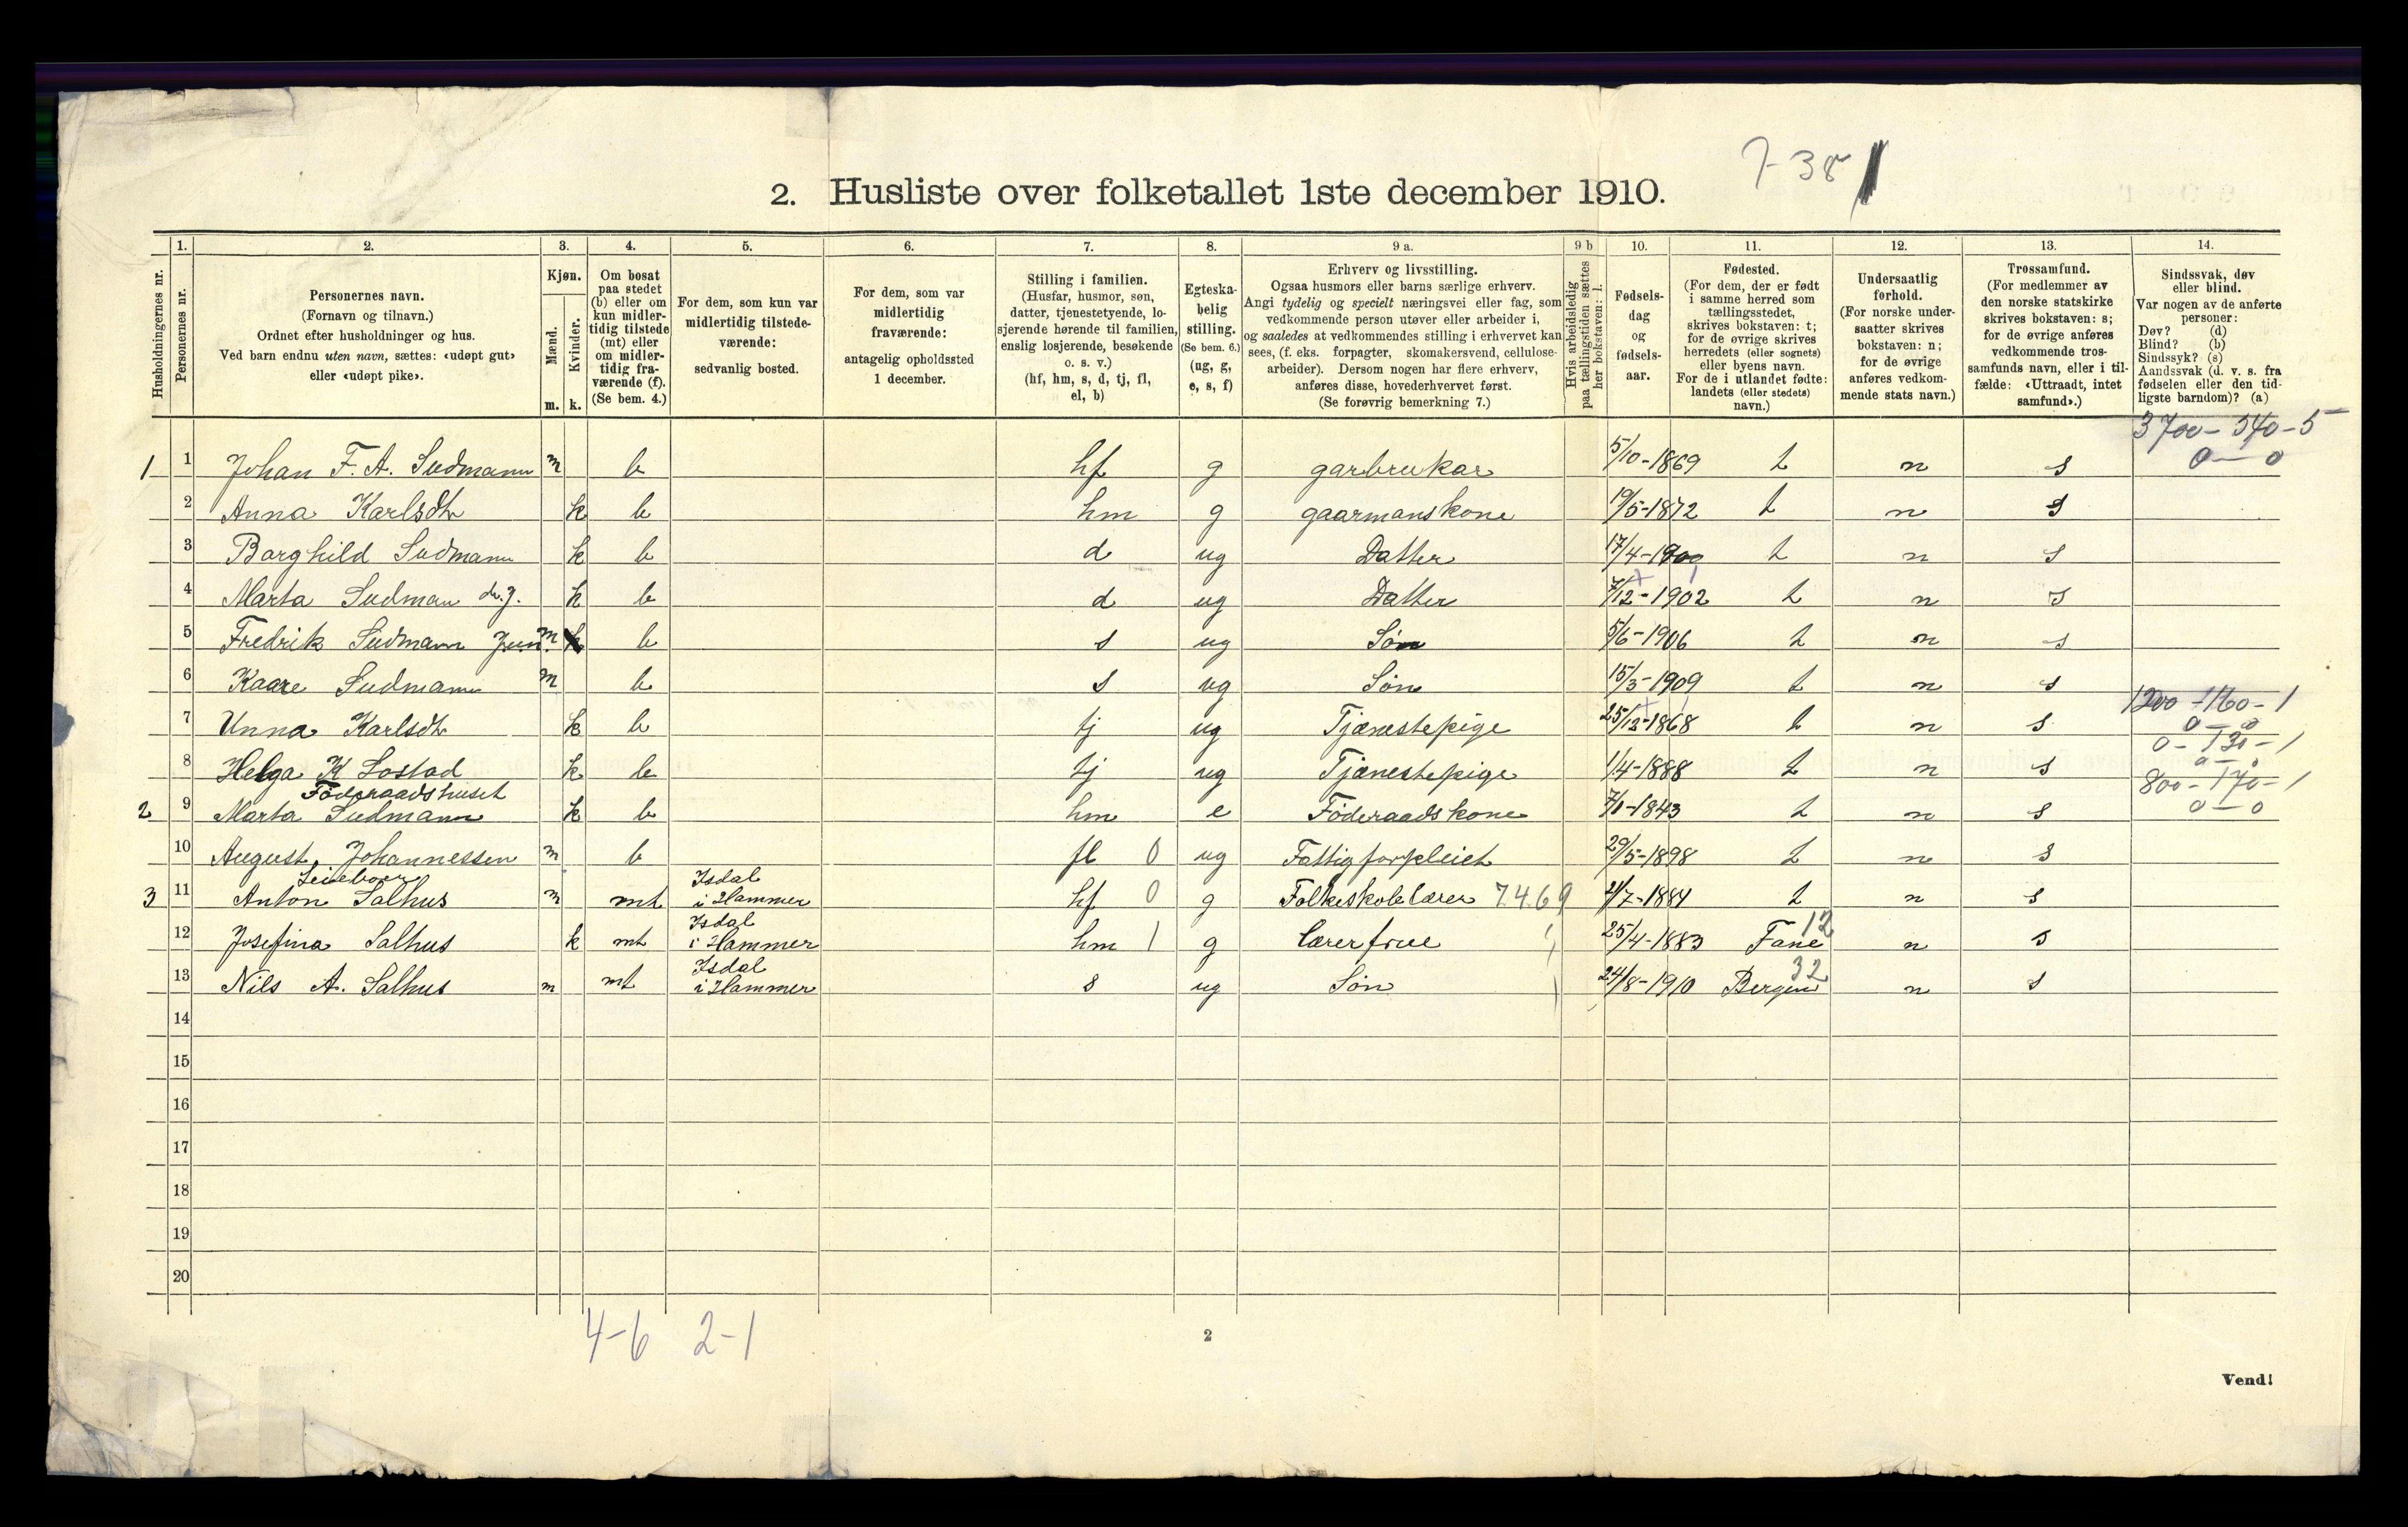 7-38
2. Husliste over folketallet 1ste december 1910.
Husholdningernes nr.
1.
Personernes nr.
2.
Personernes navn.
(Fornavn og tilnavn.)
Ordnet efter husholdninger og hus.
Ved barn endnu uten navn, sættes: «udøpt gut»
eller «udøpt pike».
3.
Kjøn.
Mænd.
Kvinder.
m. k.
4.
Om bosat
paa stedet
(b) eller om
kun midler-
tidig tilstede
(mt) eller
om midler-
tidig fra-
værende (f).
(Se bem. 4.)
5.
For dem, som kun var
midlertidig tilstede-
værende:
sedvanlig bosted.
6.
For dem, som var
midlertidig
fraværende:
antagelig opholdssted
1 december.
7.
Stilling i familien.
(Husfar, husmor, søn,
datter, tjenestetyende, lo-
sjerende hørende til familien,
enslig losjerende, besøkende
o. s. v.)
(hf, hm, s, d, tj, fl,
el, b)
8.
Egteska-
belig
stilling.
(Se bem. 6.)
(ug, g,
e, s, f)
9 a.
Erhverv og livsstilling.
Ogsaa husmors eller barns særlige erhverv.
Angi tydelig og specielt næringsvei eller fag, som
vedkommende person utøver eller arbeider i,
og saaledes at vedkommendes stilling i erhvervet kan
sees, (f. eks. forpagter, skomakersvend, cellulose-
arbeider). Dersom nogen har flere erhverv,
anføres disse, hovederhvervet først.
(Se forøvrig bemerkning 7.)
9 b
Hvis arbeidsledig
paa tællingstiden sættes
her bokstaven: l.
10.
Fødsels-
dag
og
fødsels-
aar.
11.
Fødested.
(For dem, der er født
i samme herred som
tællingsstedet,
skrives bokstaven: t;
for de øvrige skrives
herredets (eller sognets)
eller byens navn.
For de i utlandet fødte:
landets (eller stedets)
navn.)
12.
Undersaatlig
forhold.
(For norske under-
saatter skrives
bokstaven: n;
for de øvrige
anføres vedkom-
mende stats navn.)
13.
Trossamfund.
(For medlemmer av
den norske statskirke
skrives bokstaven: s;
for de øvrige anføres
vedkommende tros-
samfunds navn, eller i til-
fælde: «Uttraadt, intet
samfund».)
14.
Sindssvak, døv
eller blind.
Var nogen av de anførte
personer:
Døv? (d)
Blind? (b)
Sindssyk? (s)
Aandssvak (d. v. s. fra
fødselen eller den tid-
ligste barndom)? (a)
3700-540-5
0-0
1 1 Johan F. A. Sudmann m b hf g garbrukar 5/10-1869 t n s
2 Anna Karlsdtr k b hm g gaarmanskone 19/5-1872 t n s
3 Borghild Sudmann k b d ug Datter 17/4-1900 t n s
4 Marta Sudman k b d ug Datter 7/12-1902 t n s
5 Fredrik Sudmann Jun. m b s ug Søn 5/6-1906 t n s
6 Kaare Sudmann m b s ug Søn 15/3-1909 t n s
1200-160-1
0-0
7 Unna Karlsdtr k b tj ug Tjænestepige 25/12-1868 t n s
0-130-1
0-0
8 Helga K Lostad k b tj ug Tjænestepige 1/4-1888 t n s
800-170-1
0-0
Føderaadshuset
2 9 Marta Sudmann k b hm e Føderaadskone 7/1-1843 t n s
10 August Johannessen m b fl 0 ug Fattigforpleiet 29/5-1898 t n s
Leieboer
3 11 Anton Salhus m mt Isdal i Hammer hf 0 g Folkeskolelærer 7.4.69 4/7-1884 t n s
12 Josefina Salhus k mt Isdal i Hammer hm 1 g lærerfrue 25/4-1883 Fane 12 n s
13 Nils A. Salhus m mt Isdal i Hammer s ug Søn 24/8-1910 Bergen 32 n s
14
15
16
17
18
19
20
4-6 2-1
2
Vend!